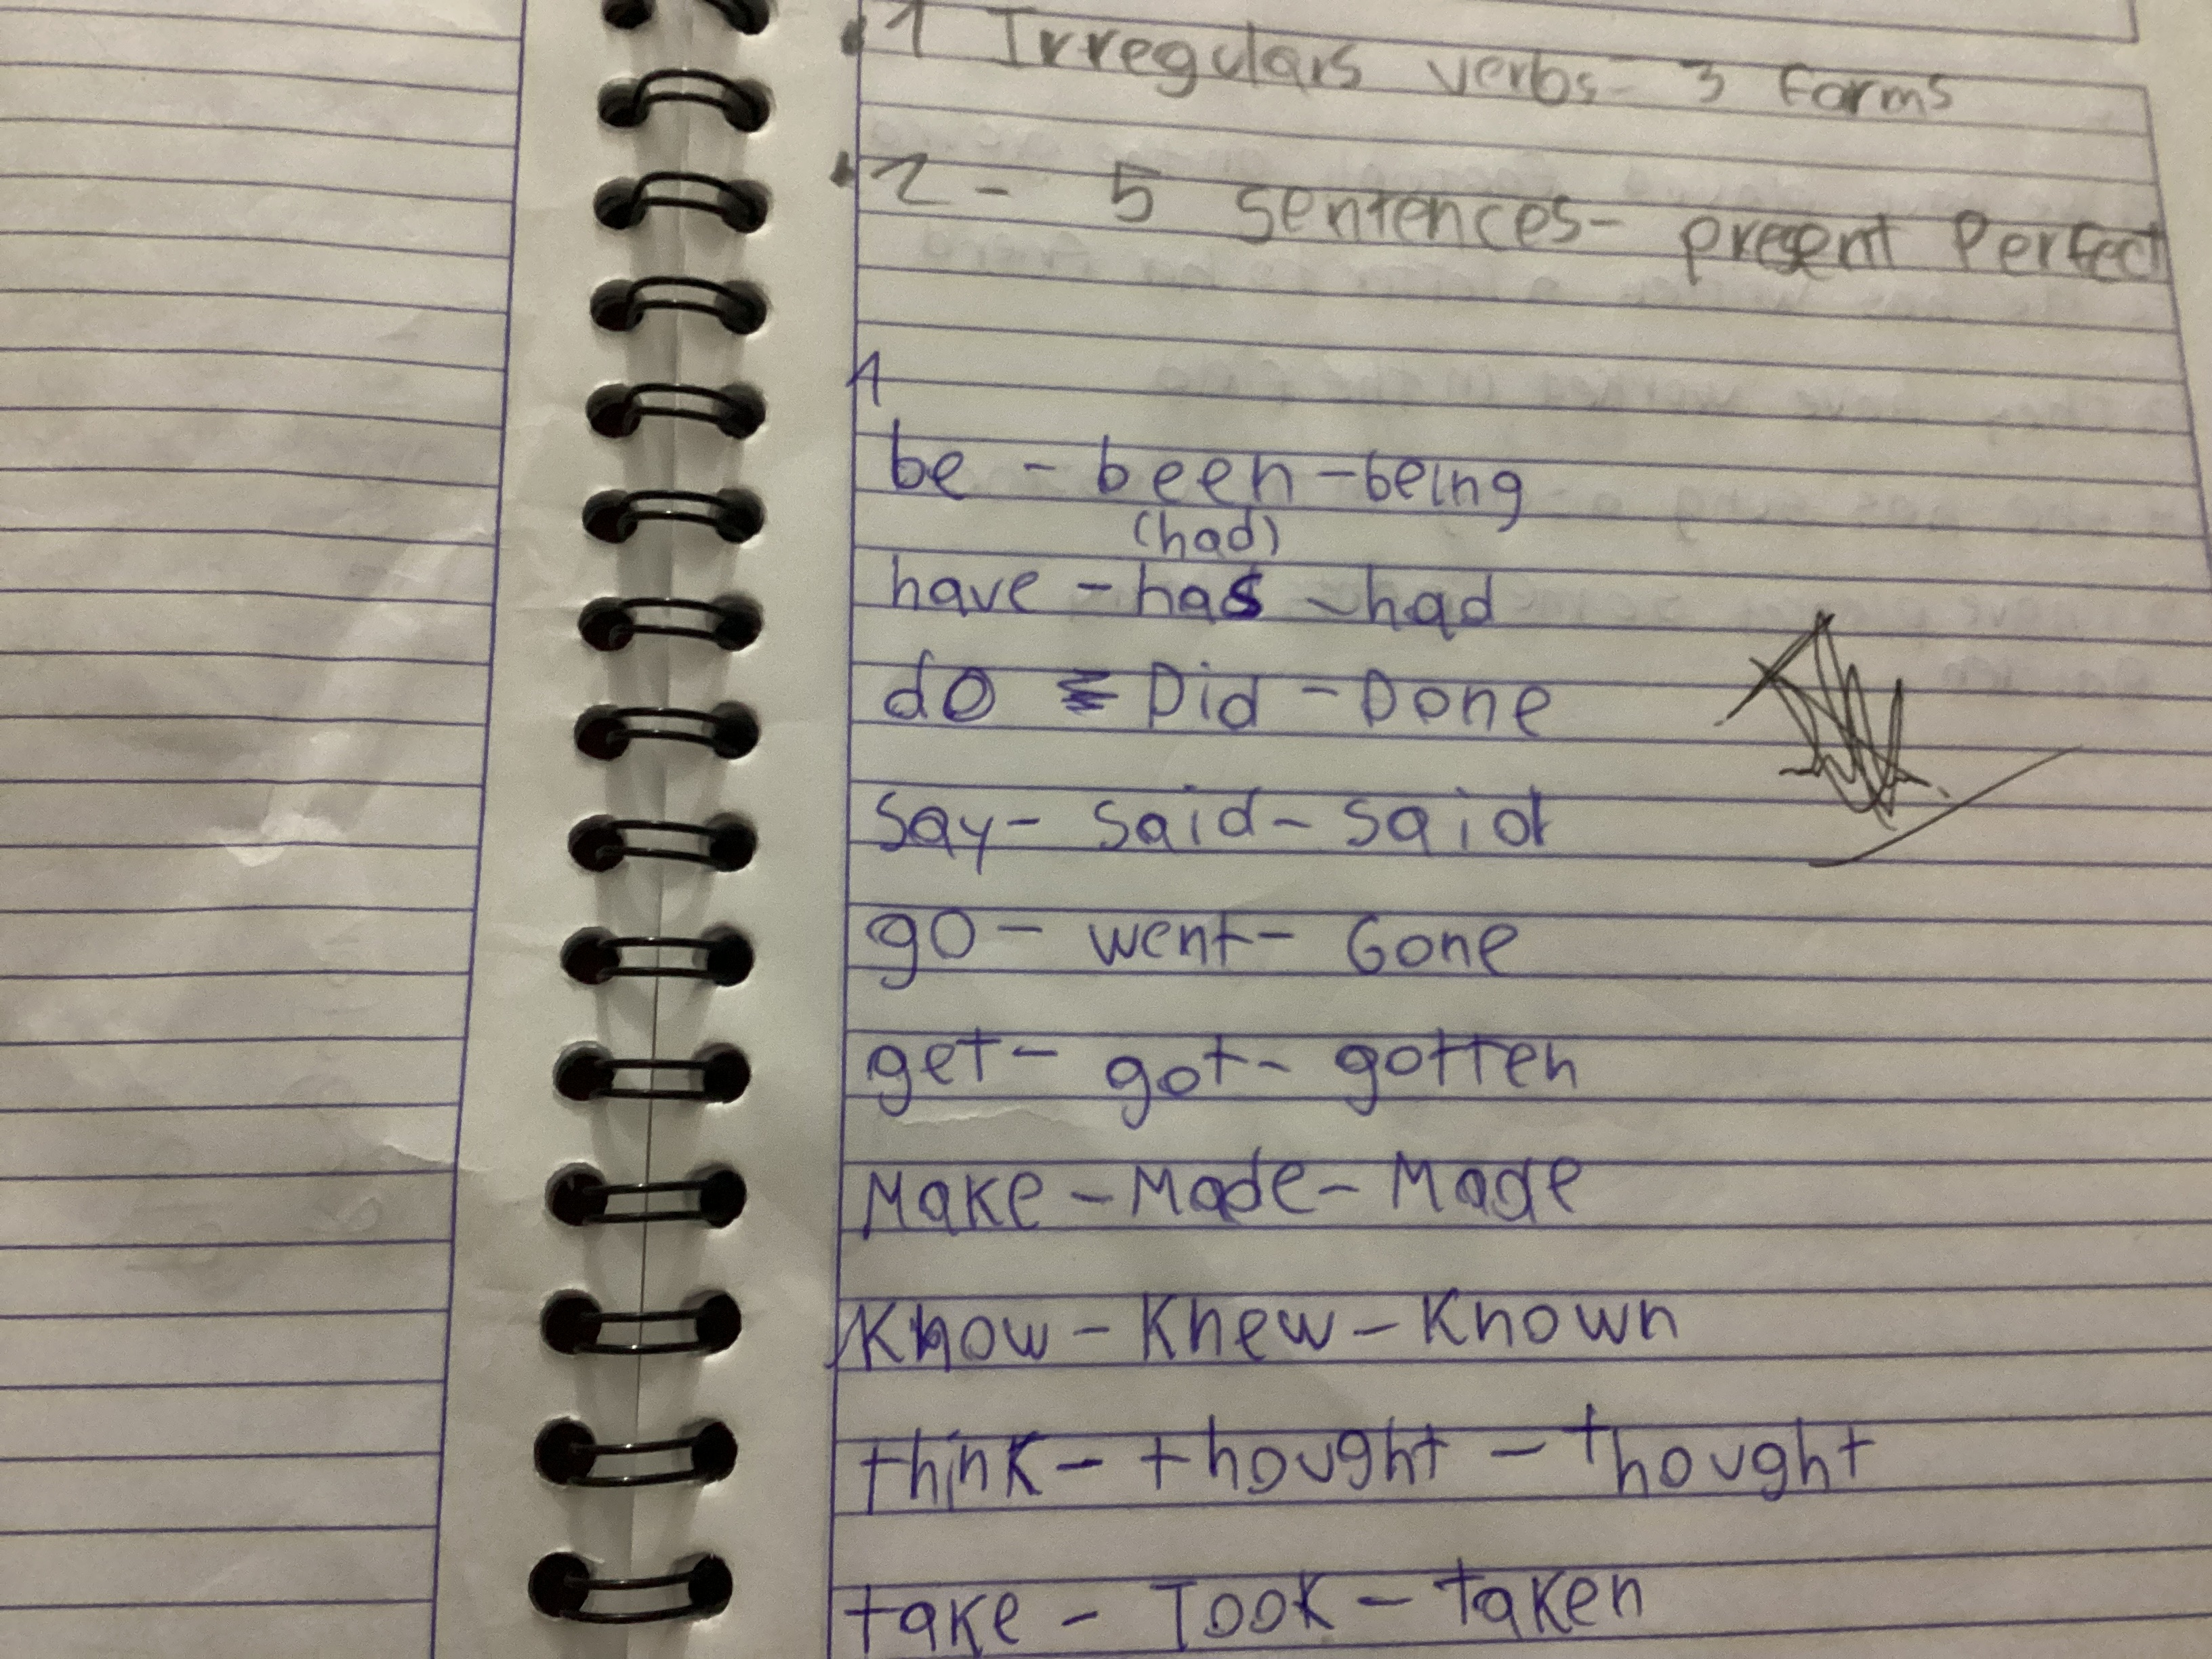 1 Irregulars verbs - 3 Forms
2 - 5 sentences - present Perfect
1
be - been - being
(had)
have - has - had
do - Did - Done
say - said - said
go - went - Gone
get - got - gotten
Make - Made - Made
Know - Knew - Known
think - thought - thought
take - Took - taken